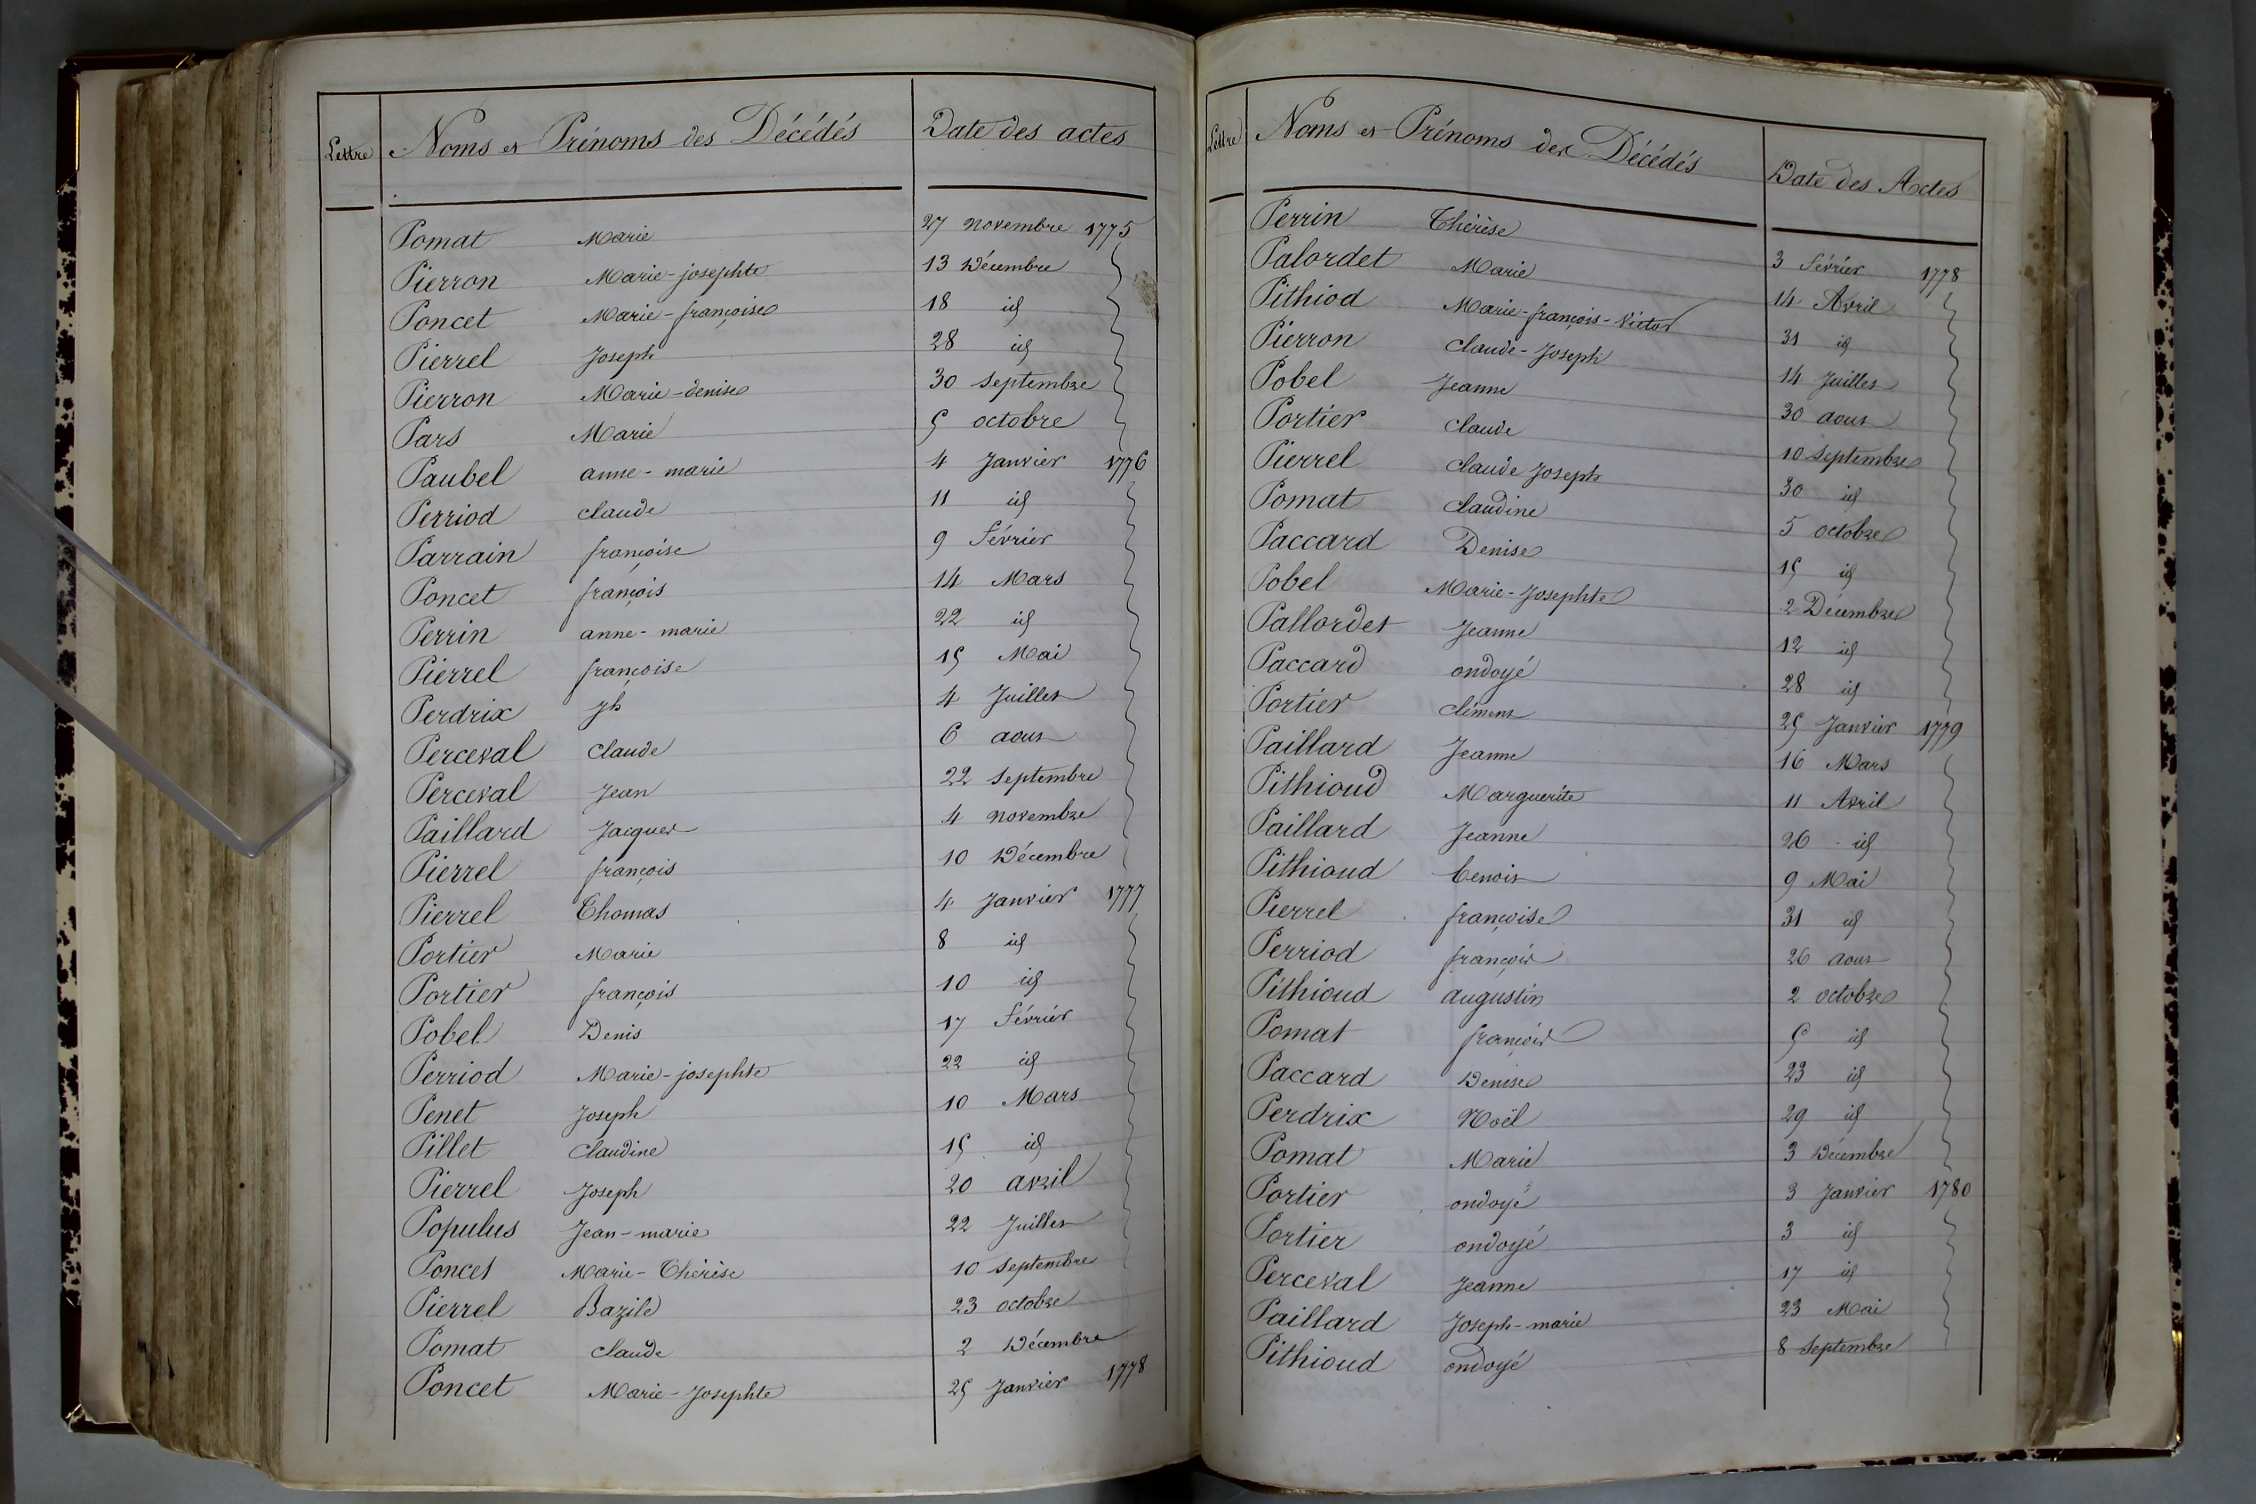 Lettre Noms et Prénoms des Décédés Date des actes
Pomat Marie 27 novembre 1775
Pierron Marie-josephte 13 Décembre
Poncet Marie-françoise 18 id
Pierrel Joseph 28 id
Pierron Marie-denise 30 septembre
Pars Marie 5 octobre
Paubel anne-marie 4 Janvier 1776
Perriod claude 11 id
Parrain françoise 9 février
Poncet françois 14 Mars
Perrin anne-marie 22 id
Pierrel françoise 15 Mai
Perdrix Jh 4 Juillet
Perceval claude 6 aout
Perceval Jean 22 septembre
Paillard Jacques 4 novembre
Pierrel françois 10 Décembre
Pierrel Thomas 4 Janvier 1777
Portier Marie 8 id
Portier françois 10 id
Pobel Denis 17 février
Perriod Marie-josephte 22 id
Penet Joseph 10 Mars
Pillet claudine 15 id
Pierrel Joseph 20 avril
Populus Jean-marie 22 Juillet
Poncet Marie-Thérèse 10 septembre
Pierrel Bazile 23 octobre
Pomat claude 2 Décembre
Poncet Marie-Josephte 25 Janvier 1778
Lettre Noms et Prénoms des Décédés Date des Actes
Perrin Thérèse 3 février 1778
Palordet Marie 14 Avril
Pithiod Marie-françois-Victor 31 id
Pierron claude-Joseph 14 Juillet
Pobel Jeanne 30 aout
Portier claude 10 septembre
Pierrel claude Joseph 30 id
Pomat claudine 5 octobre
Paccard Denise 15 id
Pobel Marie-Josephte 2 Décembre
Pallordet Jeanne 12 id
Paccard ondoyé 28 id
Portier clément 25 Janvier 1779
Paillard Jeanne 16 Mars
Pithioud Marguerite 11 Avril
Paillard Jeanne 26 id
Pithioud benoit 9 Mai
Pierrel françoise 31 id
Perriod françois 26 aout
Pithioud augustin 2 octobre
Pomat françois 5 id
Paccard Denise 23 id
Perdrix Noël 29 id
Pomat Marie 3 Décembre
Portier ondoyé 3 Janvier 1780
Portier ondoyé 3 id
Perceval Jeanne 17 id
Paillard Joseph-marie 23 Mai
Pithioud ondoyé 8 septembre